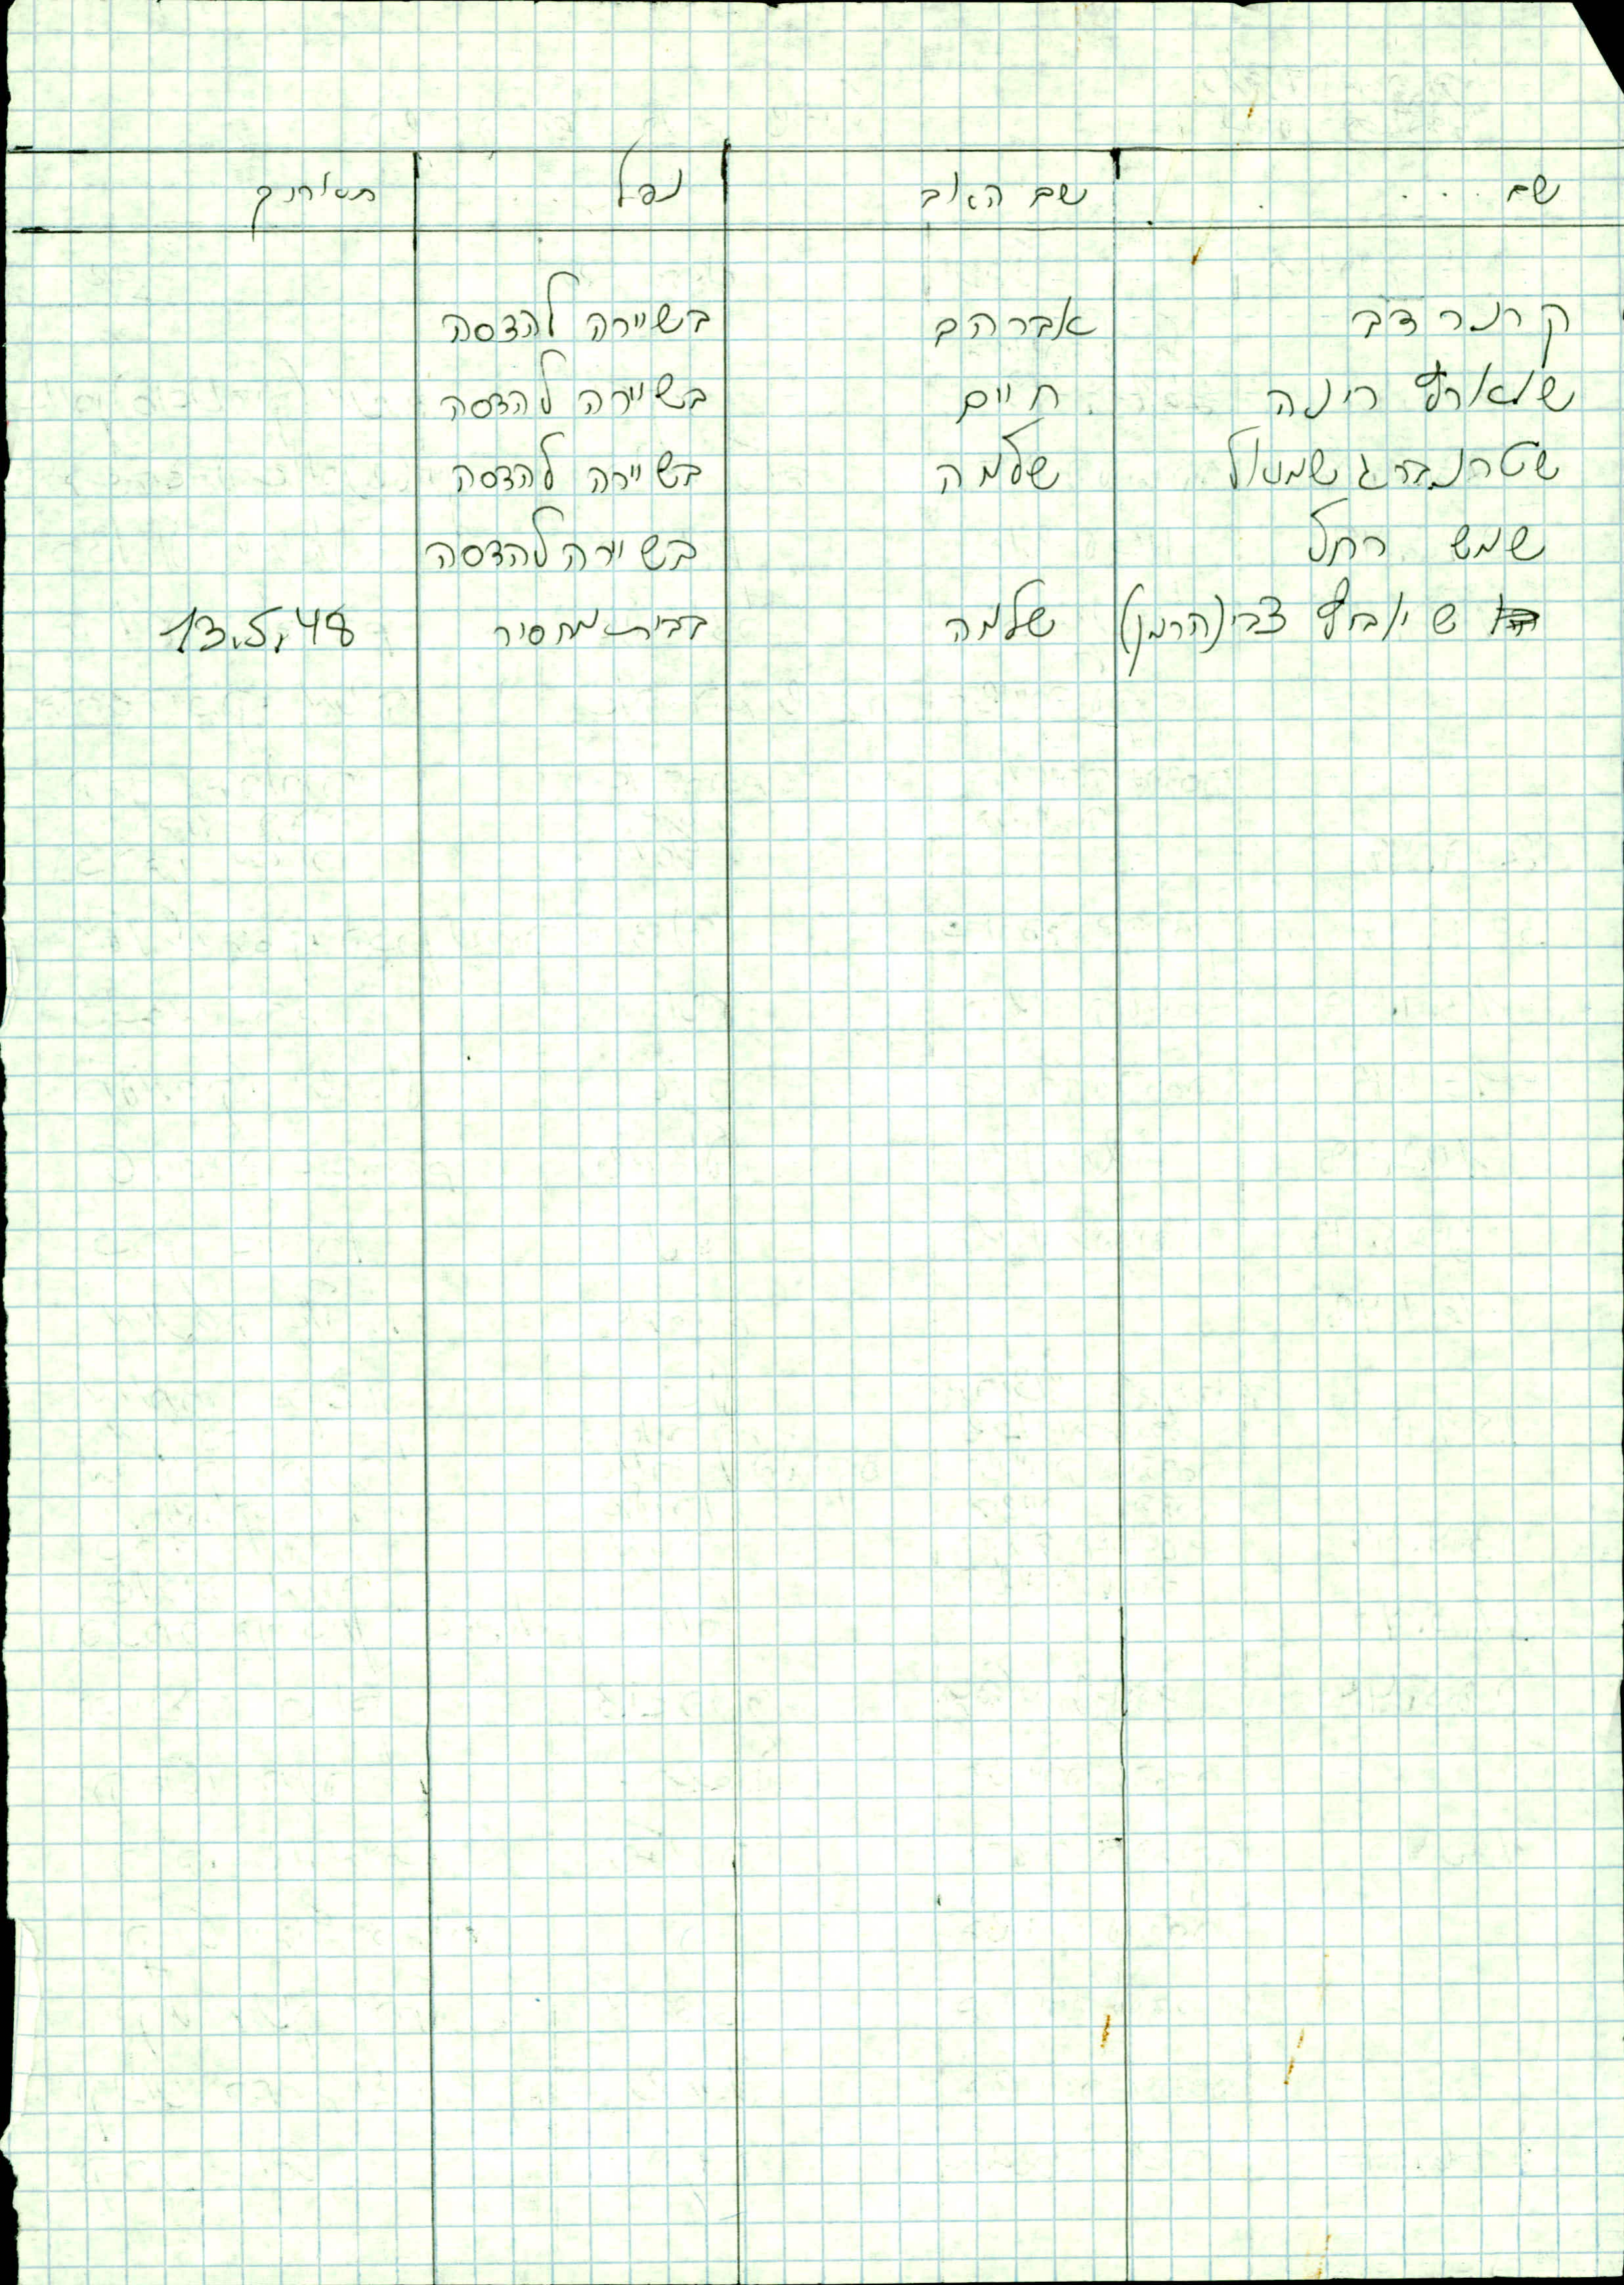 שם שם האב נפל תאריך
קרנר דב אברהם בשיירה להדסה
שווארץ רינה חיים בשיירה להדסה
שטרנברג שמואל שלמה בשיירה להדסה
שמש רחל בשיירה להדסה
צבי (הרמן) שלמה בבית מחסיר 13.5.48